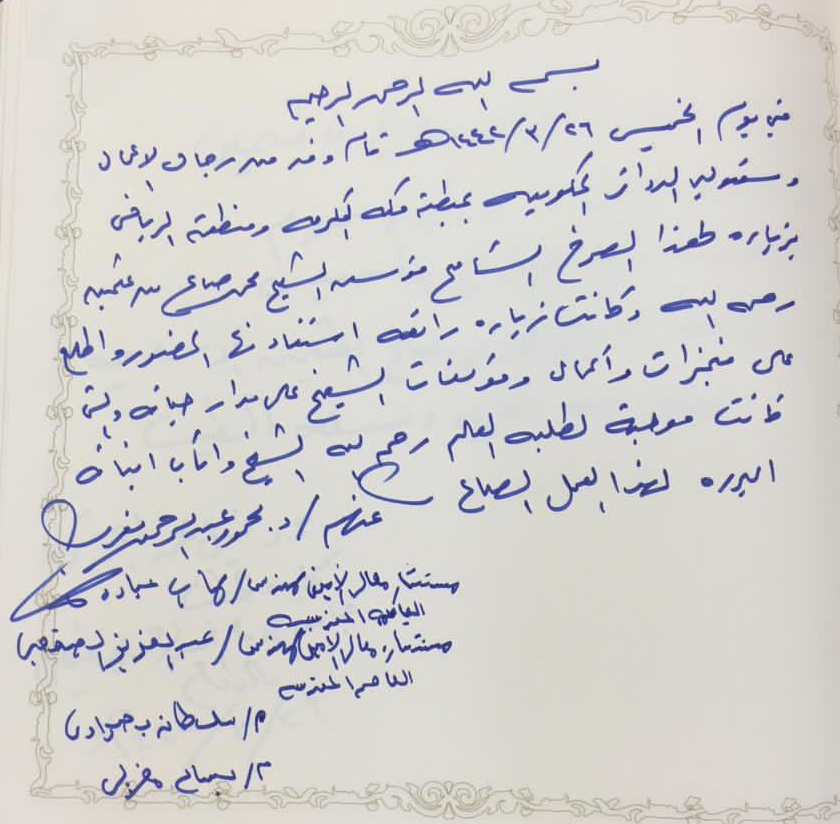 بسم الله الرحمن الرحيم
في يوم الخميس ٢٦/٣/١٤٤٢هـ قام وفد من رجال الاعمال
ومسئولي الدوائر الحكوميه بمنطقة مكه المكرمه ومنطقة الرياض
بزياره لهذا الصرح الشامخ مؤسسه الشيخ محمد صالح بن عثيمين
رحمه الله وكانت زياره رائعه استفاد منها الحضور واطلع
على منجزات وأعمال ومؤلفات الشيخ على مدار حياته والتي
كانت موجهة لطلبه العلم رحم الله الشيخ وأثاب ابنائه
البرره لهذا العمل الصالح
عنهم / د. محمود عبدالرحمن
مستشار معالي الأمين مهندس / إيهاب عباده
العاصمه المقدسه
مستشار معالي الأمين مهندس / عبدالعزيز
العاصمه المقدسه
م / سلطان
م /